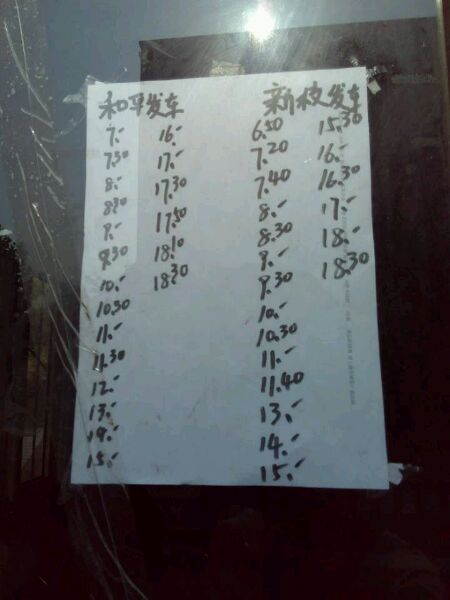 和平发车
7.-
7.30
8.-
8.30
9.-
9.30
10.-
10.30
11.-
11.30
12.-
13.-
14.-
15.-
16.-
17.-
17.30
17.50
18.10
18.30
新校发车
6.50
7.20
7.40
8.-
8.30
9.-
9.30
10.-
10.30
11.-
11.40
13.-
14.-
15.-
15.30
16.-
16.30
17.-
18.-
18.30